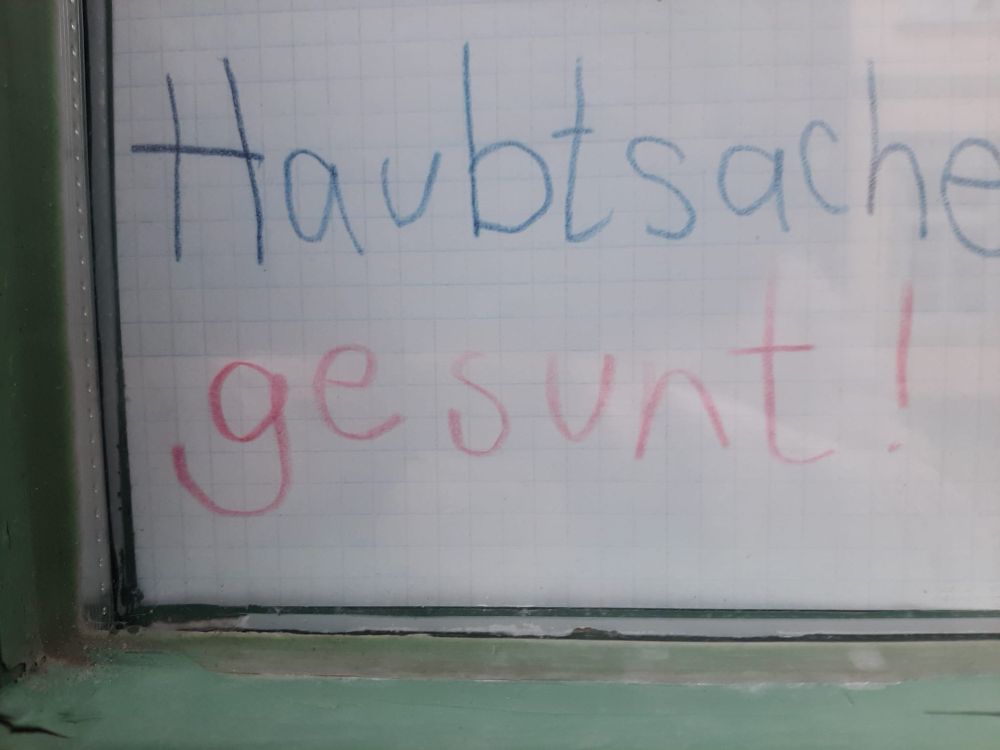 Haubtsache
gesunt!